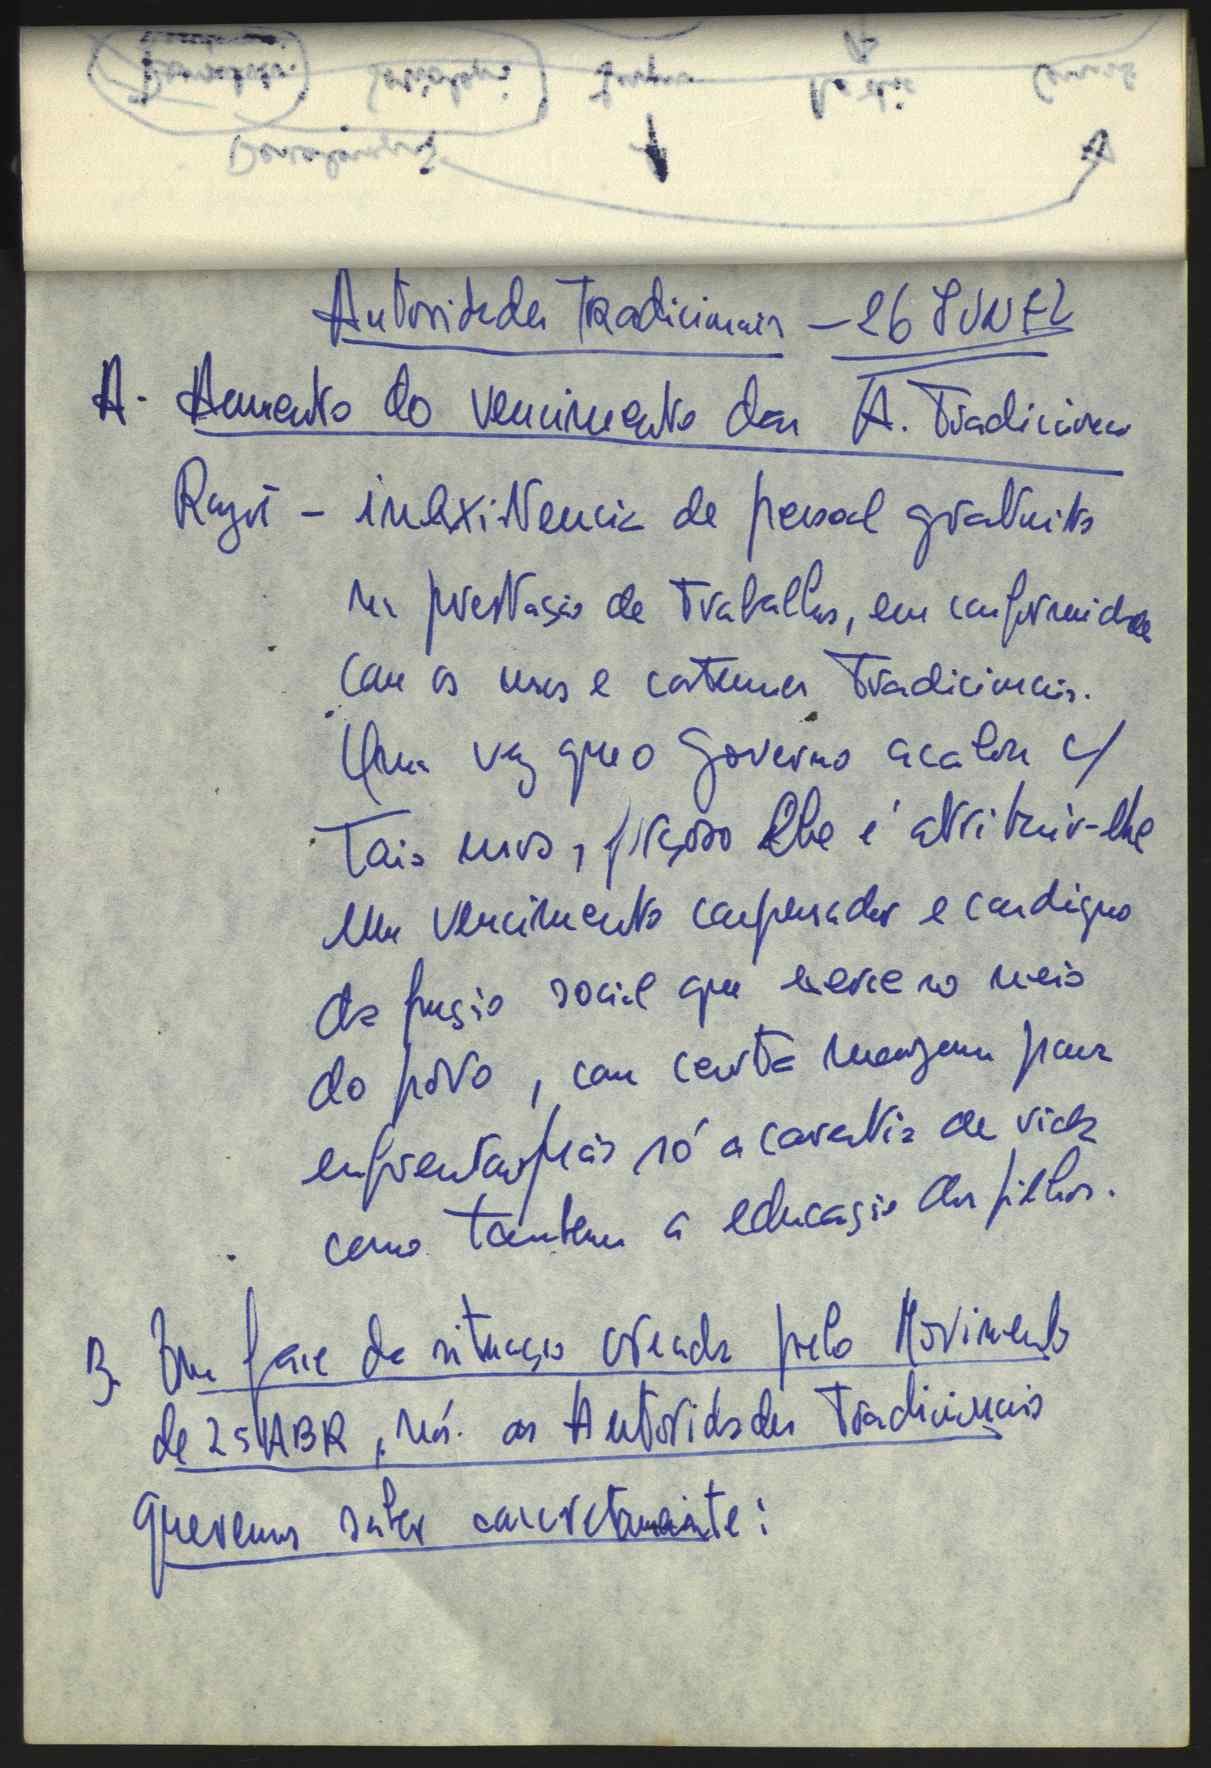 Autoridades Tradicionais - 26 JUN
A. Aumento do vencimento das A. Tradicionais
Razões - inexistencia de pessoal gratuito
na prestação de trabalhos, em conformidade
com os usos e costumes tradicionais.
Uma vez que o Governo acabou c/
tais usos, forçoso lhe é atribuir-lhe
um vencimento compensador e condigno
da função social que exerce no meio
do povo, com certa margem para
enfrentar não só a carestia de vida
como tambem a educação dos filhos.
B. Em face da situação creada pelo Movimento
de 25ABR, nós as Autoridades Tradicionais
queremos saber concretamente: